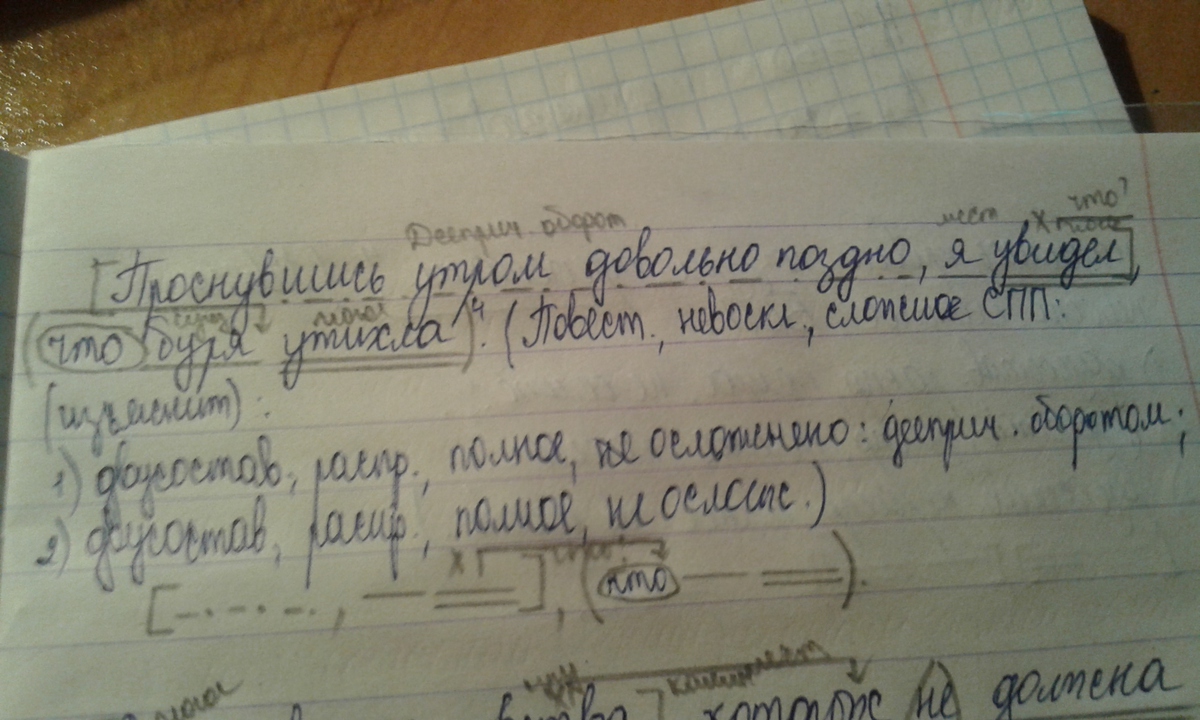 Дееприч. оборот мест Х глаг что?
[Проснувшись утром довольно поздно, я увидел],
сущ глагол
(что буря утихла)⁴. (Повест., невоскл., сложное СПП:
(изъяснит):
1) двусостав, распр., полное, не осложнено: дееприч. оборотом;
2) двусостав, распр., полное, не ослож.)
Х что?
[-.-.-., — =], (что — =).
глагол сущ
которая не должна